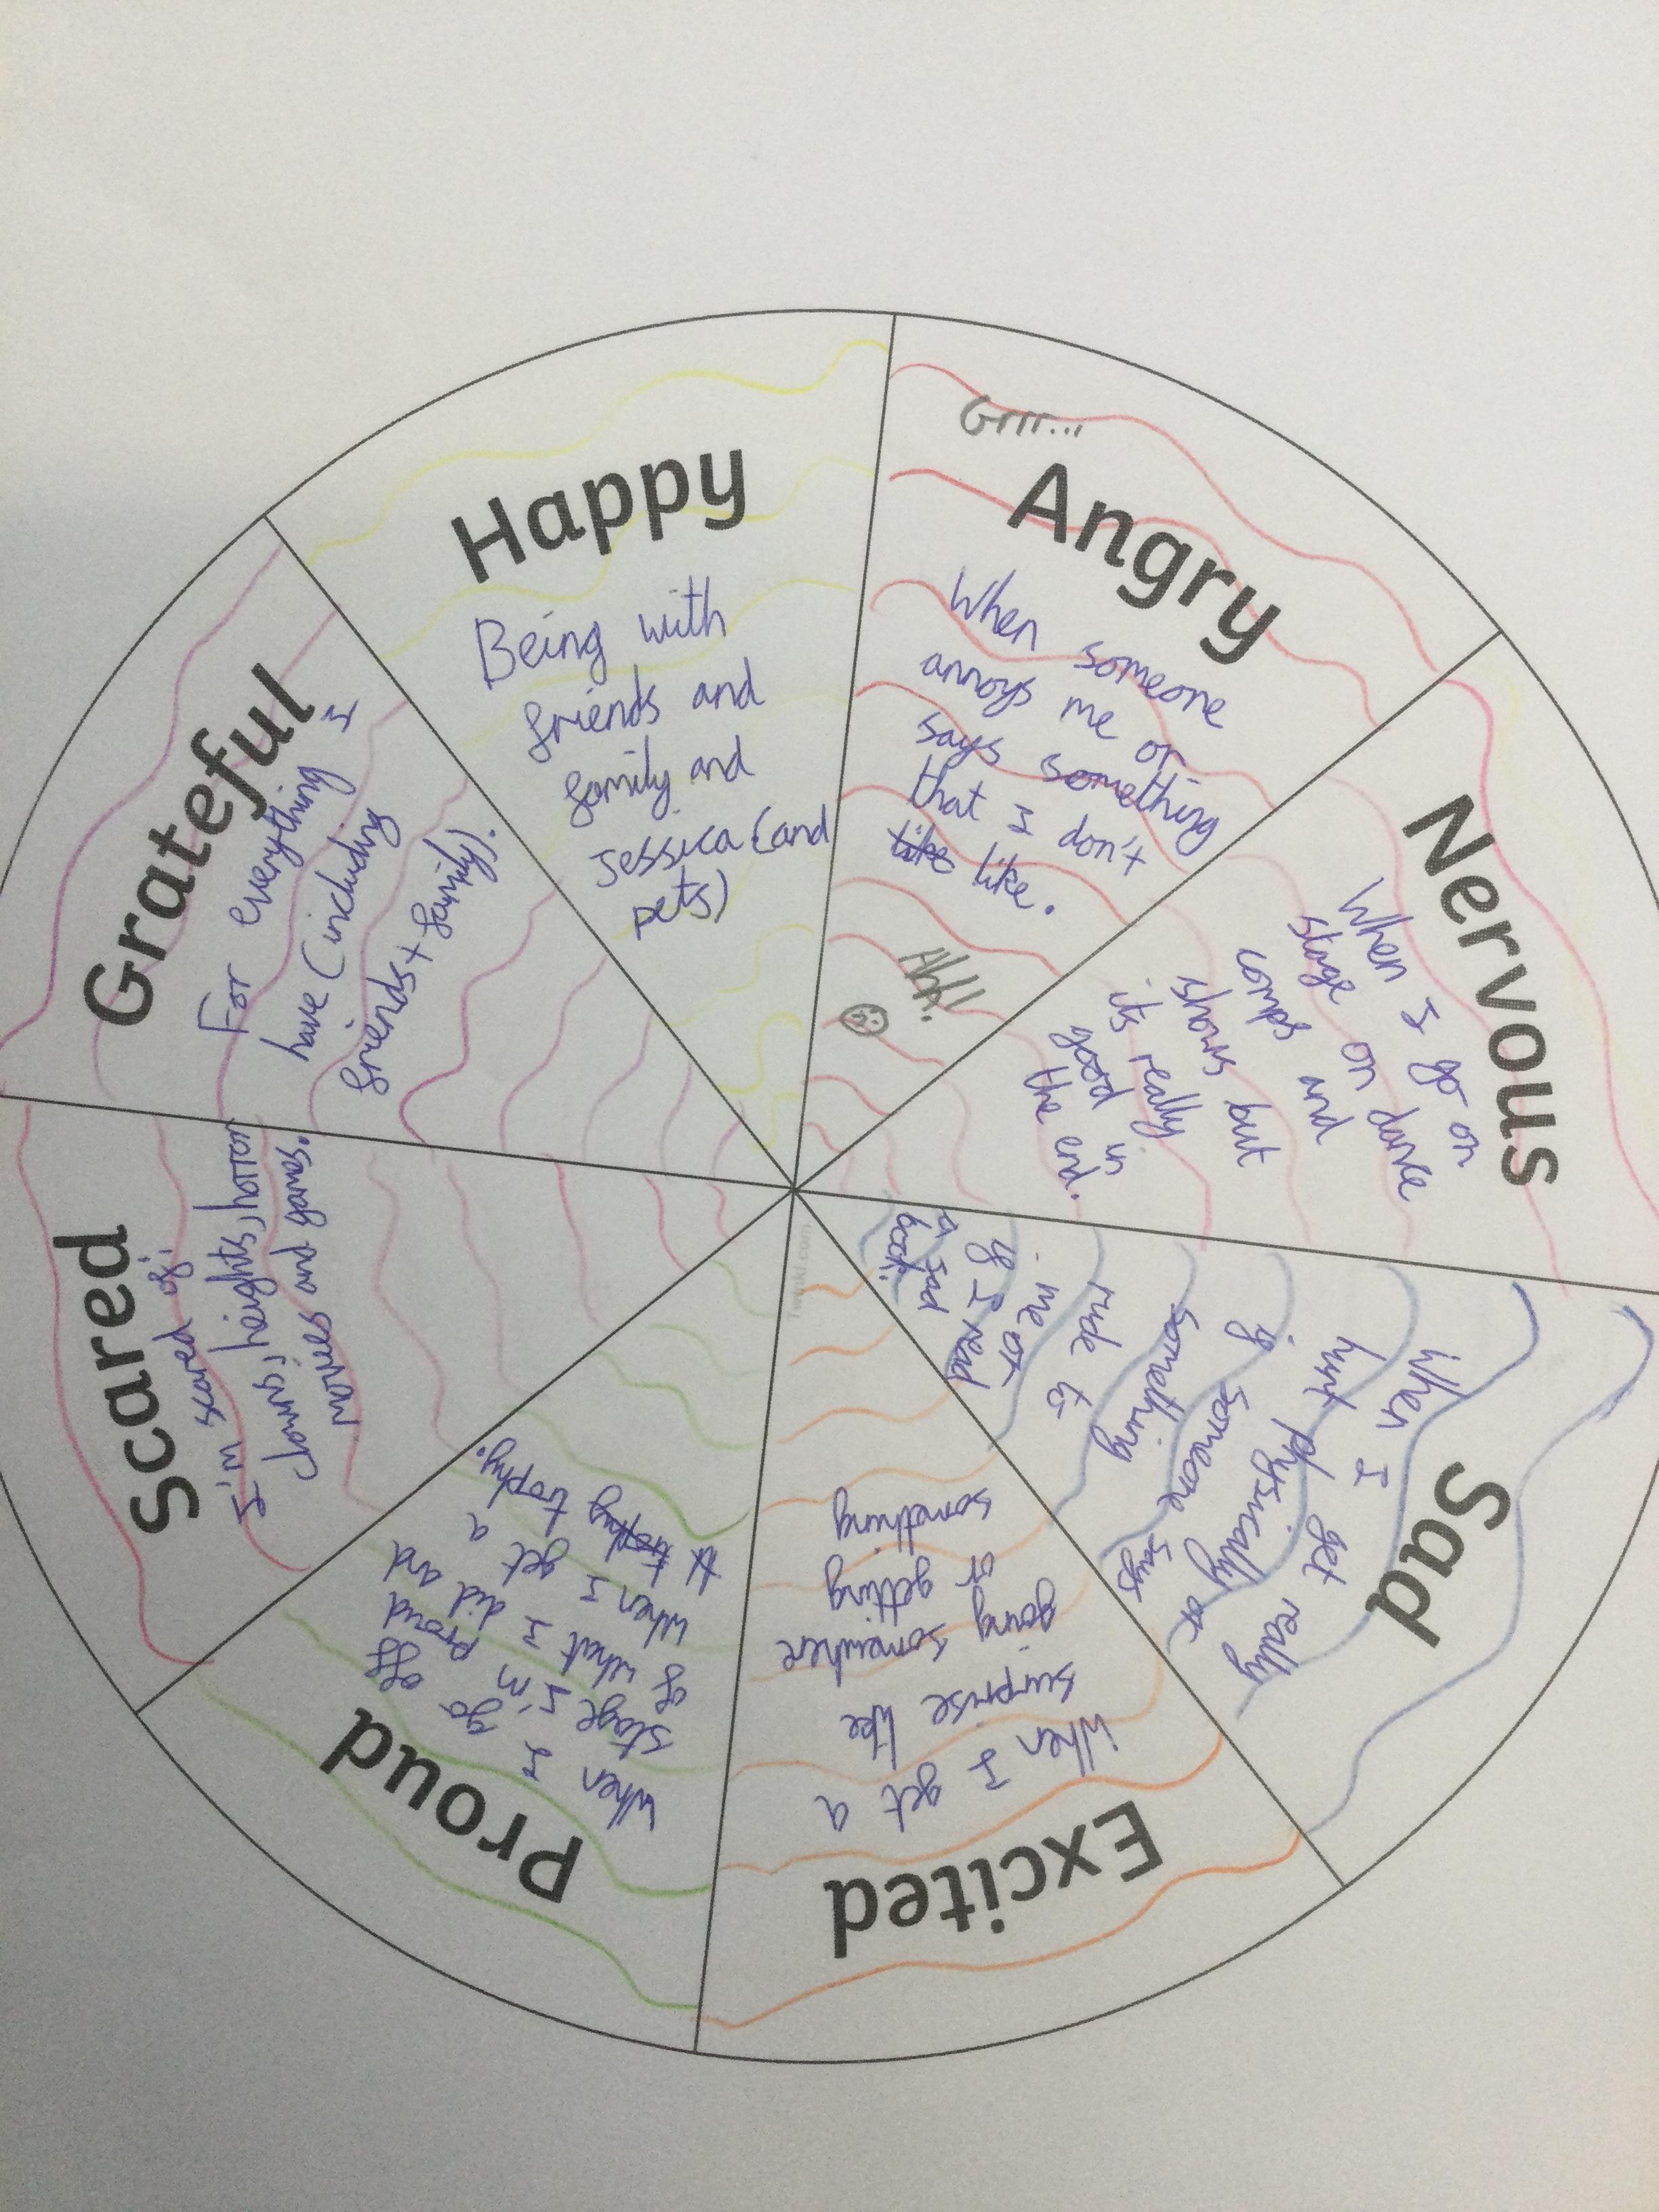 Happy
Being with
friends and
family and
Jessica (and
pets)
Grrr...
Angry
When someone
annoys me or
says something
that I don't
like like.
Ahh!!
Nervous
When I go on
stage on dance
comps and
shows but
it's really
good in
the end.
Sad
When I
get really
hurt physically or
if someone says
something
rude to
me or
if I read
a sad
book.
Excited
When I get a
surprise like
going somewhere
or getting
something
Proud
When I go off
stage I'm proud
of what I did and
when I get a
trophy trophy.
Scared
I'm scared of:
clowns, heights, horror
movies and games.
Grateful
For everything I
have (including
friends + family).